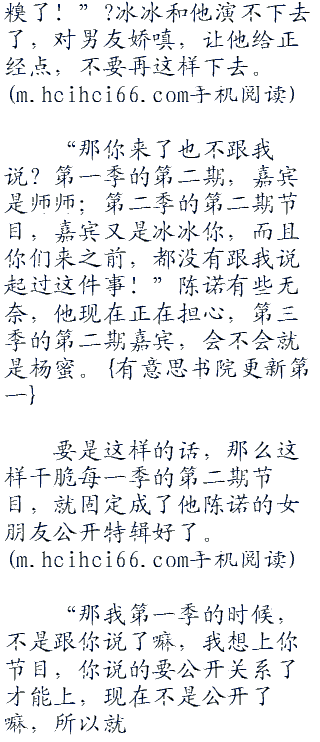 糗了！”?冰冰和他演不下去
了，对男友娇嗔，让他给正
经点，不要再这样下去。
(m.hcihci66.com手机阅读)
“那你来了也不跟我
说？第一季的第二期，嘉宾
是师师；第二季的第二期节
目，嘉宾又是冰冰你，而且
你们来之前，都没有跟我说
起过这件事！”陈诺有些无
奈，他现在正在担心，第三
季的第二期嘉宾，会不会就
是杨蜜。{有意思书院更新第
一}
要是这样的话，那么这
样干脆每一季的第二期节
目，就固定成了他陈诺的女
朋友公开特辑好了。
(m.hcihci66.com手机阅读)
“那我第一季的时候，
不是跟你说了嘛，我想上你
节目，你说的要公开关系了
才能上，现在不是公开了
嘛，所以就